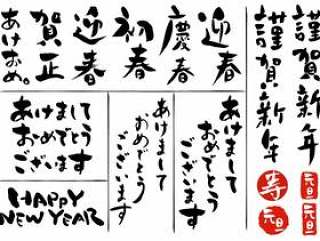 謹賀新年
謹賀新年
迎春
慶春
初春
迎春
賀正
あけおめ。
あけまして
おめでとう
ございます
あけまして
おめでとう
ございます
あけまして
おめでとう
ございます
HAPPY
NEW YEAR
寿
元旦
元旦
元旦